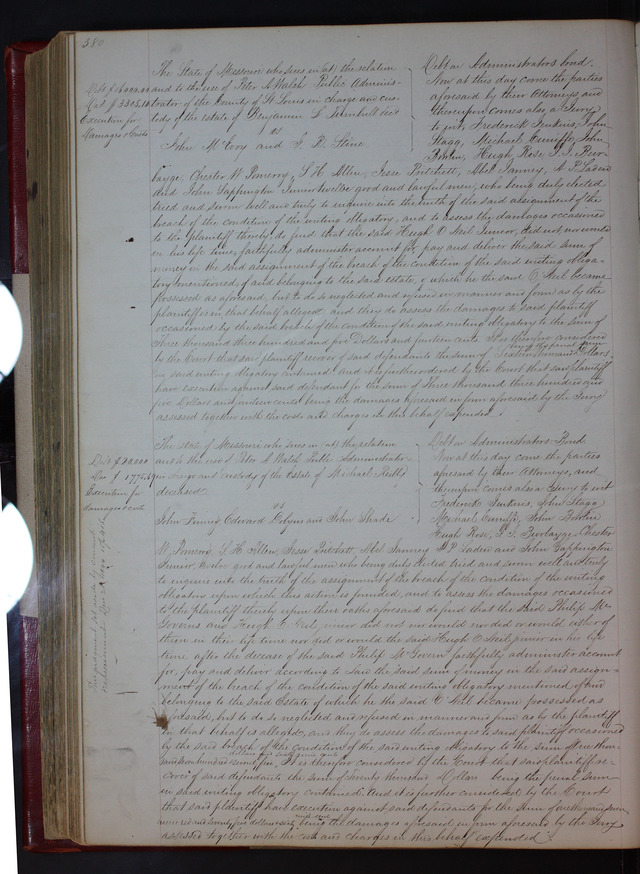 380
The State of Missouri who sues in (at) the relation
and to the use of Peter A Walsh Public Adminis-
trator of the County of St Louis in charge and cus-
tody of the estate of Benjamin L Turnbull dec'd
vs
John McEvoy and
Debt on Administrators bond.
Now at this day come the parties
aforesaid by their Attorneys, and
thereupon comes also a Jury
to wit, Frederick Jenkins, John
Stagg, Michael Cunliffe, John
Bohlen, Hugh Rose,
Execution for
Damages & Costs
Chester W Pomeroy, S H Allen, Jesse Pritchett, Abel Janney,
and John Sappington Junior twelve good and lawful men, who being duly elected
tried and sworn well and truly to enquire into the truth of the said assignment of the
breach of the condition of the writing obligatory, and to assess the damages occasioned
to the plaintiff thereby do find that the said Hugh O Neil Junior, did not nor would
in his life time, faithfully administer account for pay and deliver the said sum of
money in the said assignment of the breach of the condition of the said writing obliga-
tory mentioned, of and belonging to the said estate, of which he the said O Neil became
possessed as aforesaid, but to do so neglected and refused in manner and form as by the
plaintiff in that behalf alleged and they do assess the damages to said plaintiff
occasioned by the said breach of the condition of the said writing obligatory to the sum of
three thousand three hundred and five Dollars and fourteen cents. It is therefore considered
by the Court that said plaintiff recover of said defendants the sum of Sixteen thousand Dollars
in said writing obligatory contained and it is further considered by the Court that said plaintiff
have execution against said defendant for the sum of Three thousand three hundred and
five Dollars and fourteen cents being the damages aforesaid in form aforesaid by the Jury
assessed together with the costs and charges in this behalf expended.
The State of Missouri who sues in (at) the relation
and to the use of Peter A Walsh Public Administrator
in charge and custody of the Estate of Michael
deceased.
vs
John Finney Edward
Debt on Administrators Bond
Now at this day come the parties
aforesaid by their Attorneys, and
thereupon comes also a Jury to wit
Frederick Jenkins, John Stagg
Michael Cunliffe, John Bohlen
Hugh Rose, Chester
Debt $20000
Execution for
damages & cost
W. Pomeroy S H Allen, Jesse Pritchett, Abel Janney and John Sappington
Junior, twelve good and lawful men who being duly elected tried and sworn well and truly
to enquire into the truth of the assignment of the breach of the condition of the writing
obligatory upon which this action is founded, and to assess the damages occasioned
to the plaintiff thereby upon their oaths aforesaid do find that the said Philip Mc
Govern and Hugh O Neil junior did not nor would nor did or would either of
them in their life time nor did or would the said Hugh O Neil junior in his life
time after the decease of the said Philip McGovern faithfully administer account
for, pay and deliver according to law the said sum of money in the said assign-
ment of the breach of the condition of the said writing obligatory mentioned of and
belonging to the said Estate of which he the said O Neil became possessed as
aforesaid, but to do so neglected and refused in manner and form as by the plaintiff
in that behalf is alleged, and they do assess the damages to said plaintiff occasioned
by the said breach of the condition of the said writing obligatory to the sum
It is therefore considered by the Court that said plaintiff re-
cover of said defendants the sum of twenty thousand Dollars being the penal sum
in said writing obligatory contained. And it is further considered by the Court
that said plaintiff have execution against said defendants for the sum of
being the damages aforesaid, in form aforesaid by the Jury
assessed together with the costs and charges in this behalf expended.